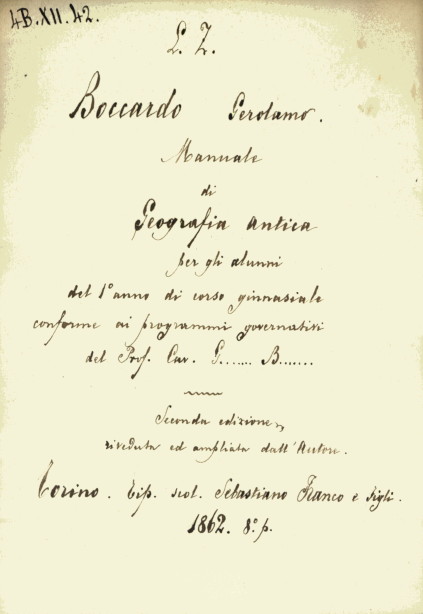 4B.XII.42.
L. Z.
Boccardo Gerolamo.
Manuale
di
Geografia Antica
per gli alunni
del 1° anno di corso ginnasiale
conforme ai programmi governativi
del Prof. Cav. G....... B.......
Seconda edizione,
riveduta ed ampliata dall'Autore.
Torino. Tip. scol. Sebastiano Franco e Figli.
1862. 8.° p.